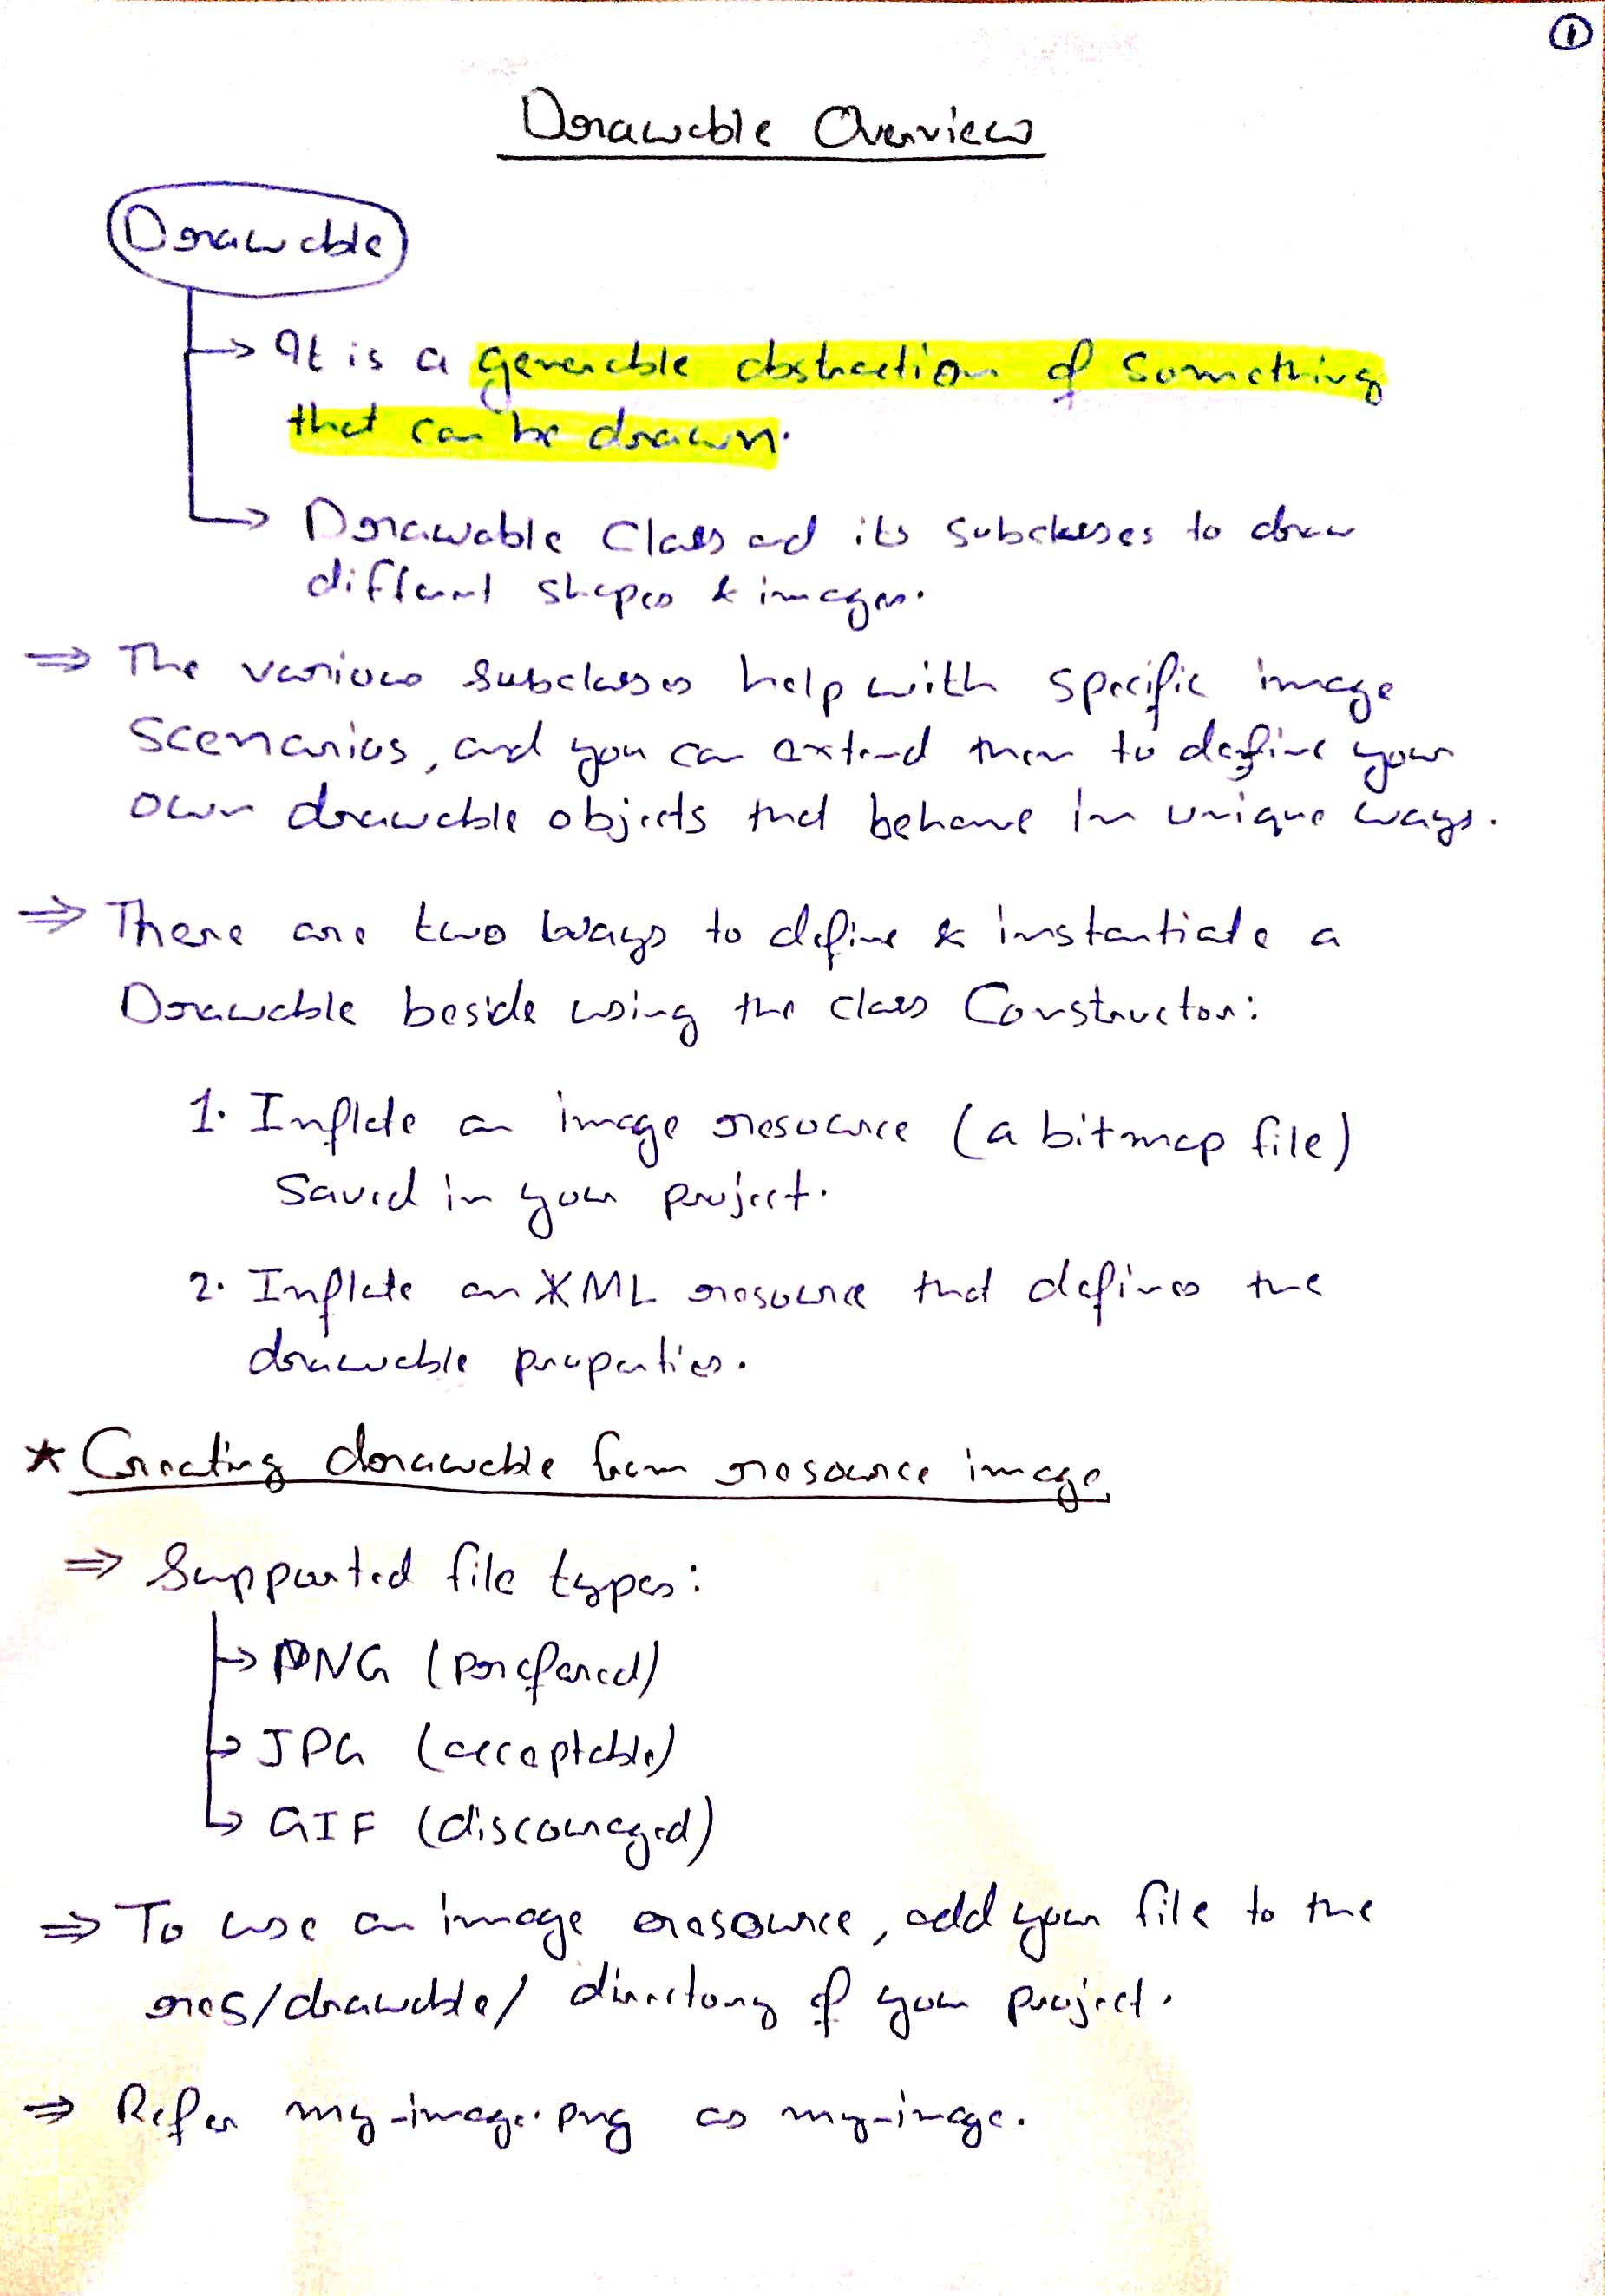 ①
Drawable Overview
Drawable
→ It is a generable abstraction of something
that can be drawn.
→ Drawable Class and its subclasses to draw
different shapes & images.
⇒ The various subclasses help with specific image
Scenarios, and you can extend them to define your
own drawable objects that behave in unique ways.
⇒ There are two ways to define & instantiate a
Drawable beside using the class Constructor:
1. Inflate an image resource (a bitmap file)
Saved in your project.
2. Inflate an XML resource that defines the
drawable properties.
* Creating drawable from resource image
⇒ Supported file types:
→ PNG (preferred)
→ JPG (acceptable)
→ GIF (discouraged)
⇒ To use an image resource, add your file to the
res/drawable/ directory of your project.
⇒ Refer my-image.png as my-image.